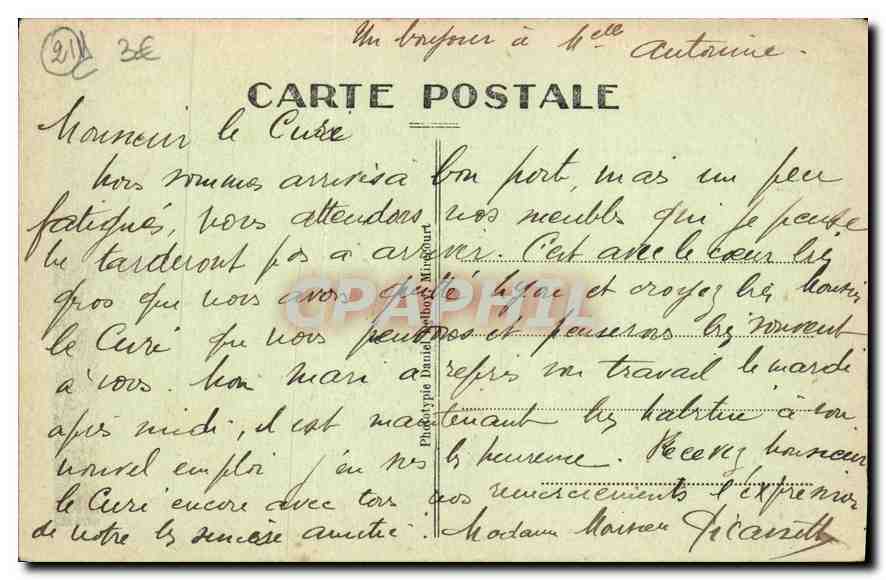 21
3€
Un bonjour à Melle Antonine.
CARTE POSTALE
Monsieur le Curé
Nous sommes arrivés à bon port, mais un peu
fatigués, nous attendons nos meubles qui je pense
ne tarderont pas à arriver. C'est avec le cœur très
gros que nous avons quitté Lyon et croyez bien Monsieur
le Curé que nous pensons et penserons très souvent
à vous. Mon mari a repris son travail le mardi
après midi, il est maintenant très habitué à son
nouvel emploi j'en suis très heureuse. Recevez Monsieur
le Curé encore avec tous nos remerciements l'expression
de notre très sincère amitié. Madame Monsieur
Phototypie Daniel Delboy, Mirecourt
CPAPHIL